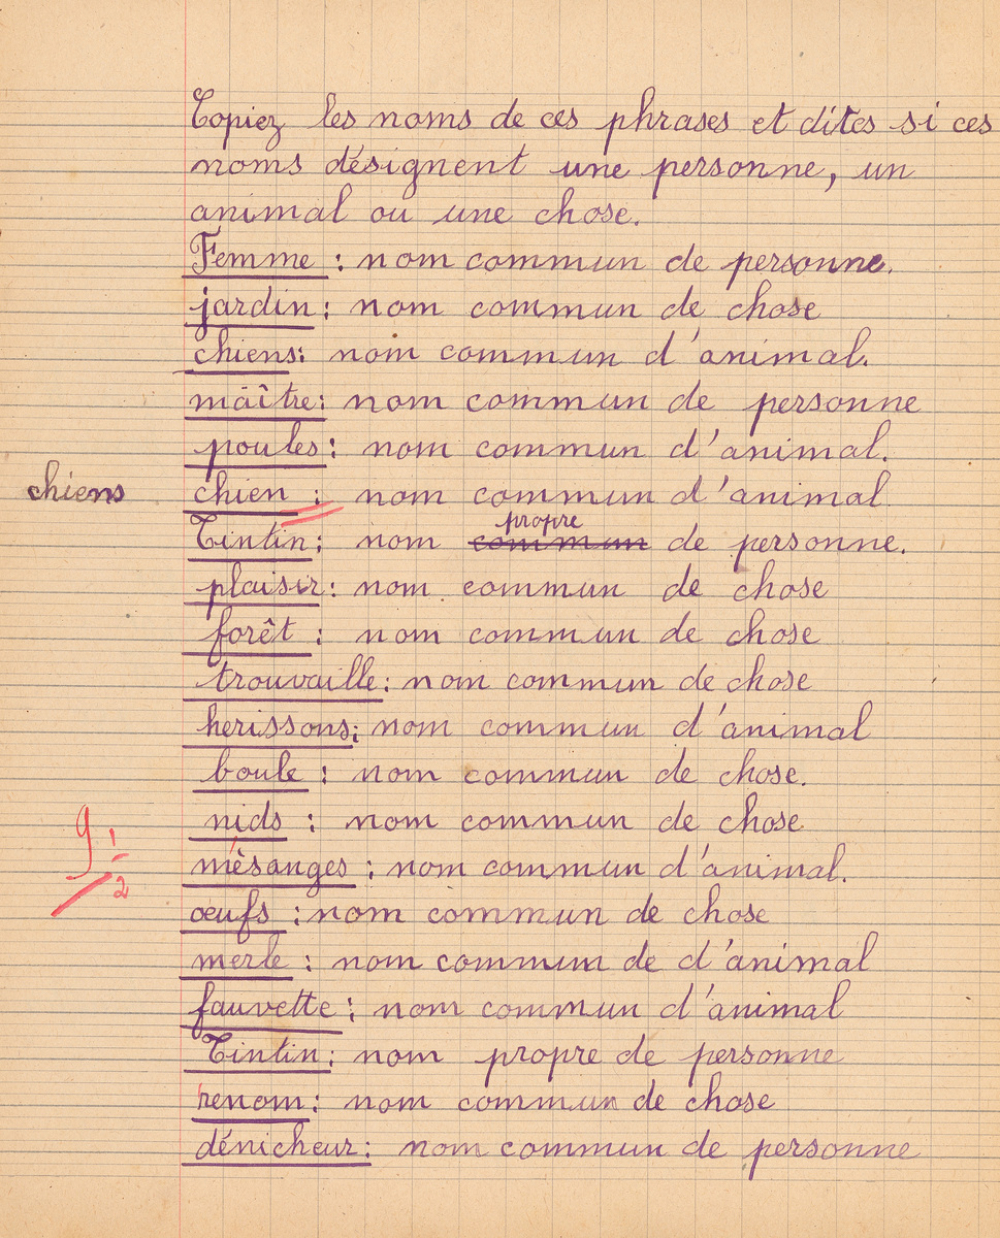 Copiez les noms de ces phrases et dites si ces
noms désignent une personne, un
animal ou une chose.
Femme : nom commun de personne.
jardin : nom commun de chose
chiens : nom commun d'animal.
maître : nom commun de personne
poules : nom commun d'animal.
chiens chien : nom commun d'animal
propre
Tintin : nom commun de personne.
plaisir : nom commun de chose
forêt : nom commun de chose
trouvaille : nom commun de chose
herissons : nom commun d'animal
boule : nom commun de chose.
nids : nom commun de chose
9 1/2
mésanges : nom commun d'animal.
œufs : nom commun de chose
merle : nom commun de d'animal
fauvette : nom commun d'animal
Tintin : nom propre de personne
renom : nom commun de chose
dénicheur : nom commun de personne